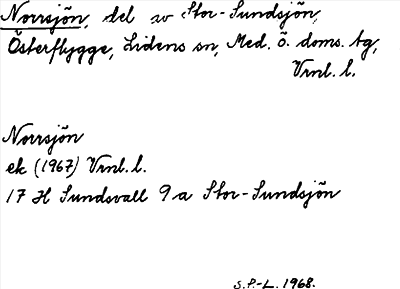 Norrsjön, del av Stor-Sundsjön,
Österflygge, Lidens sn, Med. ö. doms. tg,
Vrnl. l.
Norrsjön
ek (1967) Vrnl. l.
17 H Sundsvall 9a Stor-Sundsjön
S.P.-L. 1968.